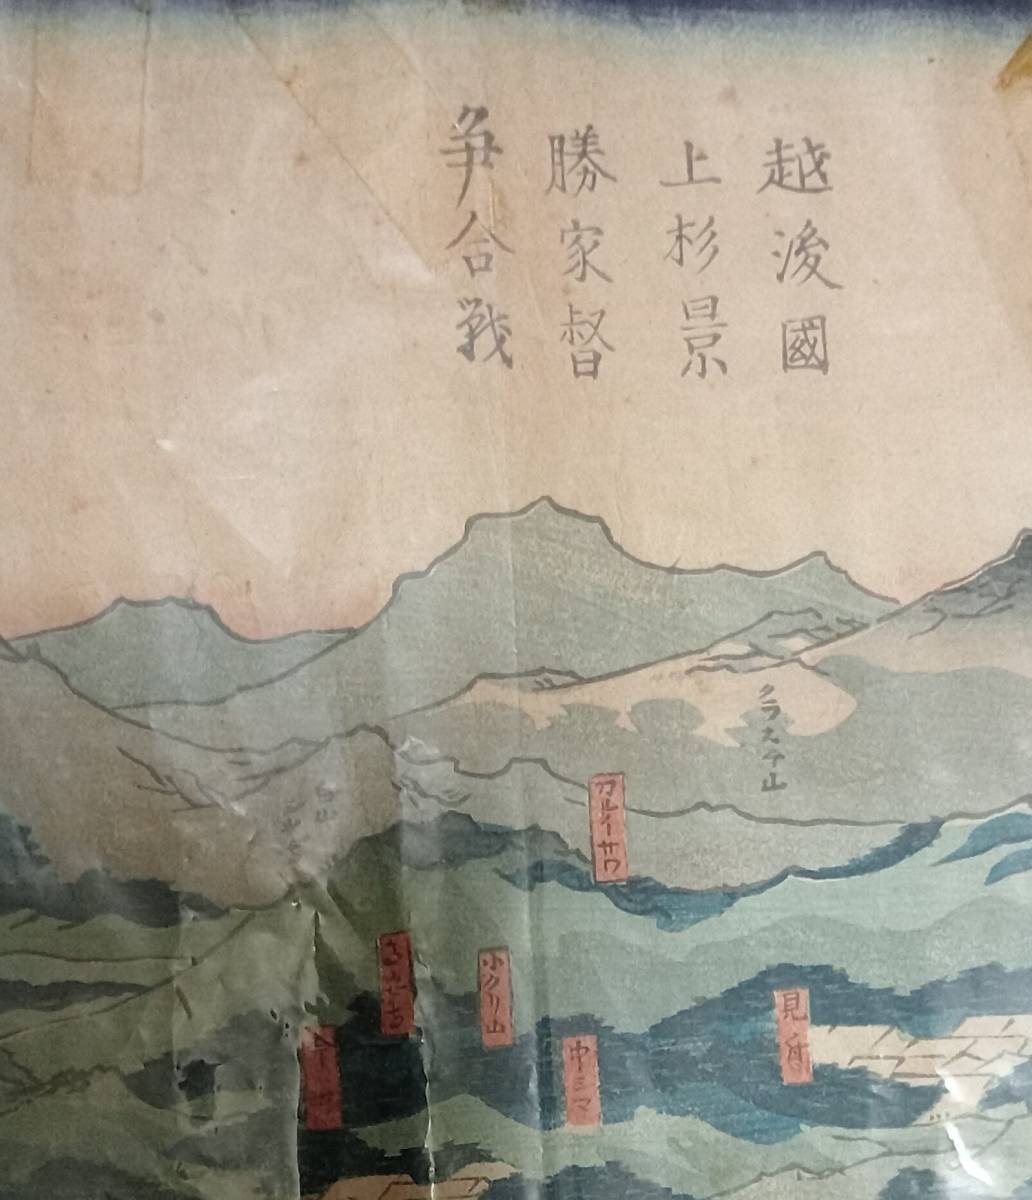 越後國
上杉景
勝家督
争合戰
クラステ山
カルイサワ
見舟
中ミマ
小クリ山
白山